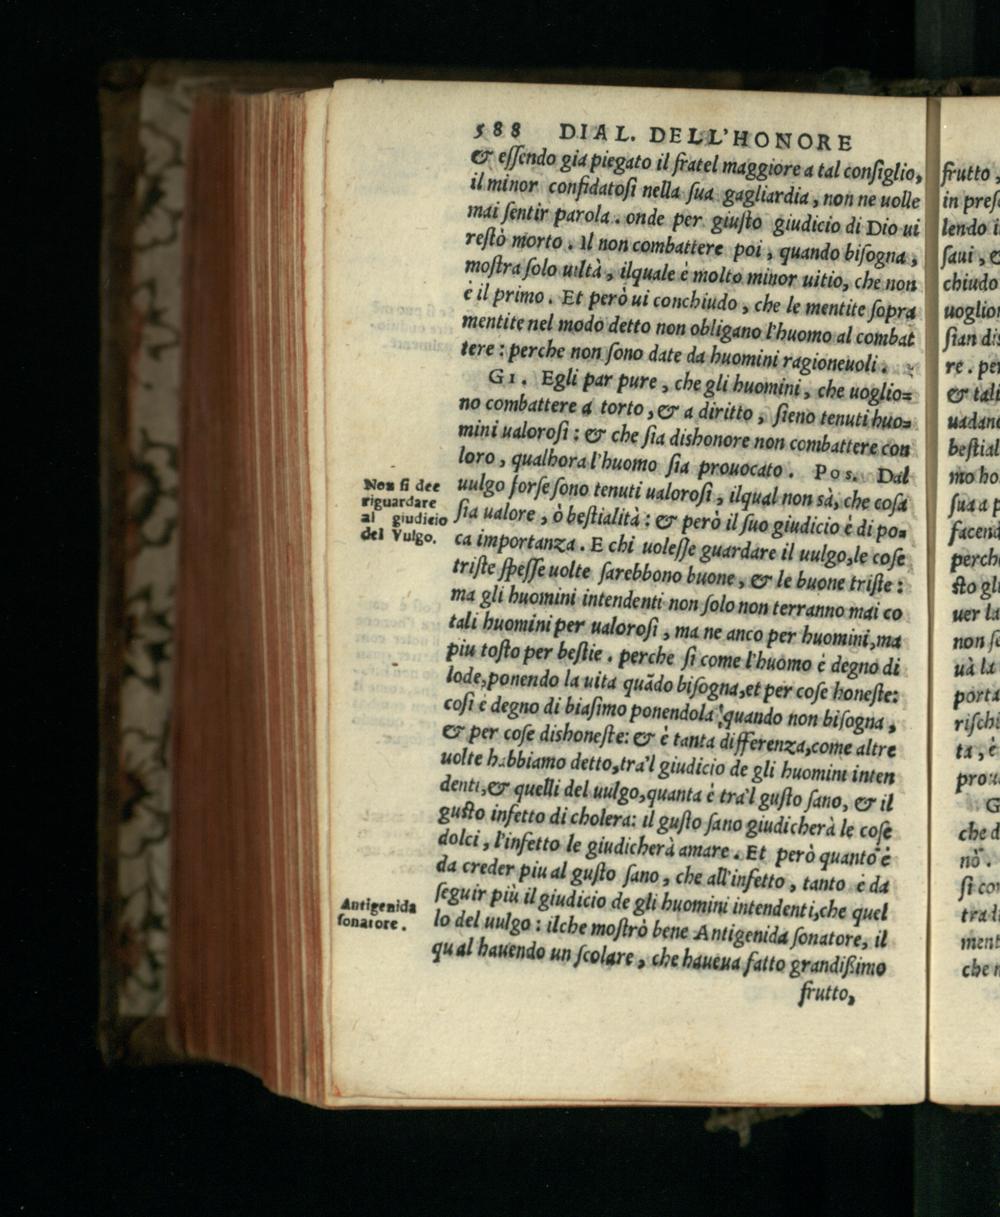 588 DIAL. DELL'HONORE
& eſſendo gia piegato il fratel maggiore a tal conſiglio,
il minor confidatoſi nella ſua gagliardia, non ne uolle
mai ſentir parola. onde per giuſto giudicio di Dio ui
reſtò morto. Il non combattere poi, quando biſogna,
moſtra ſolo uiltà, ilquale è molto minor uitio, che non
è il primo. Et però ui conchiudo, che le mentite ſopra
mentite nel modo detto non obligano l'huomo al combat
tere: perche non ſono date da huomini ragioneuoli.
GI. Egli par pure, che gli huomini, che uoglio=
no combattere a torto, & a diritto, ſieno tenuti huo=
mini ualoroſi: & che ſia dishonore non combattere con
loro, qualhora l'huomo ſia prouocato. Pos. Dal
Non ſi dee
riguardare
al giudicio
del Vulgo.
uulgo forſe ſono tenuti ualoroſi, ilqual non sà, che coſa
ſia ualore, ò beſtialità: & però il ſuo giudicio è di po=
ca importanza. E chi uoleſſe guardare il uulgo, le coſe
triſte ſpeſſe uolte ſarebbono buone, & le buone triſte:
ma gli huomini intendenti non ſolo non terranno mai co
tali huomini per ualoroſi, ma ne anco per huomini, ma
piu toſto per beſtie. perche ſi come l'huomo è degno di
lode, ponendo la uita quãdo biſogna, et per coſe honeſte:
coſi è degno di biaſimo ponendola quando non biſogna,
& per coſe dishoneſte: & è tanta differenza, come altre
uolte habbiamo detto, tra'l giudicio de gli huomini inten
denti, & quelli del uulgo, quanta è tra'l guſto ſano, & il
guſto infetto di cholera: il guſto ſano giudicherà le coſe
dolci, l'infetto le giudicherà amare. Et però quanto è
da creder piu al guſto ſano, che all'infetto, tanto è da
ſeguir più il giudicio de gli huomini intendenti, che quel
Antigenida
ſonatore.
lo del uulgo: ilche moſtrò bene Antigenida ſonatore, il
qual hauendo un ſcolare, che haueua fatto grandißimo
frutto,
frutto,
lendo
chiudo
re.
& tali
ſua a p
perche
uer la
uà la
ta, è
G
che d
nò.